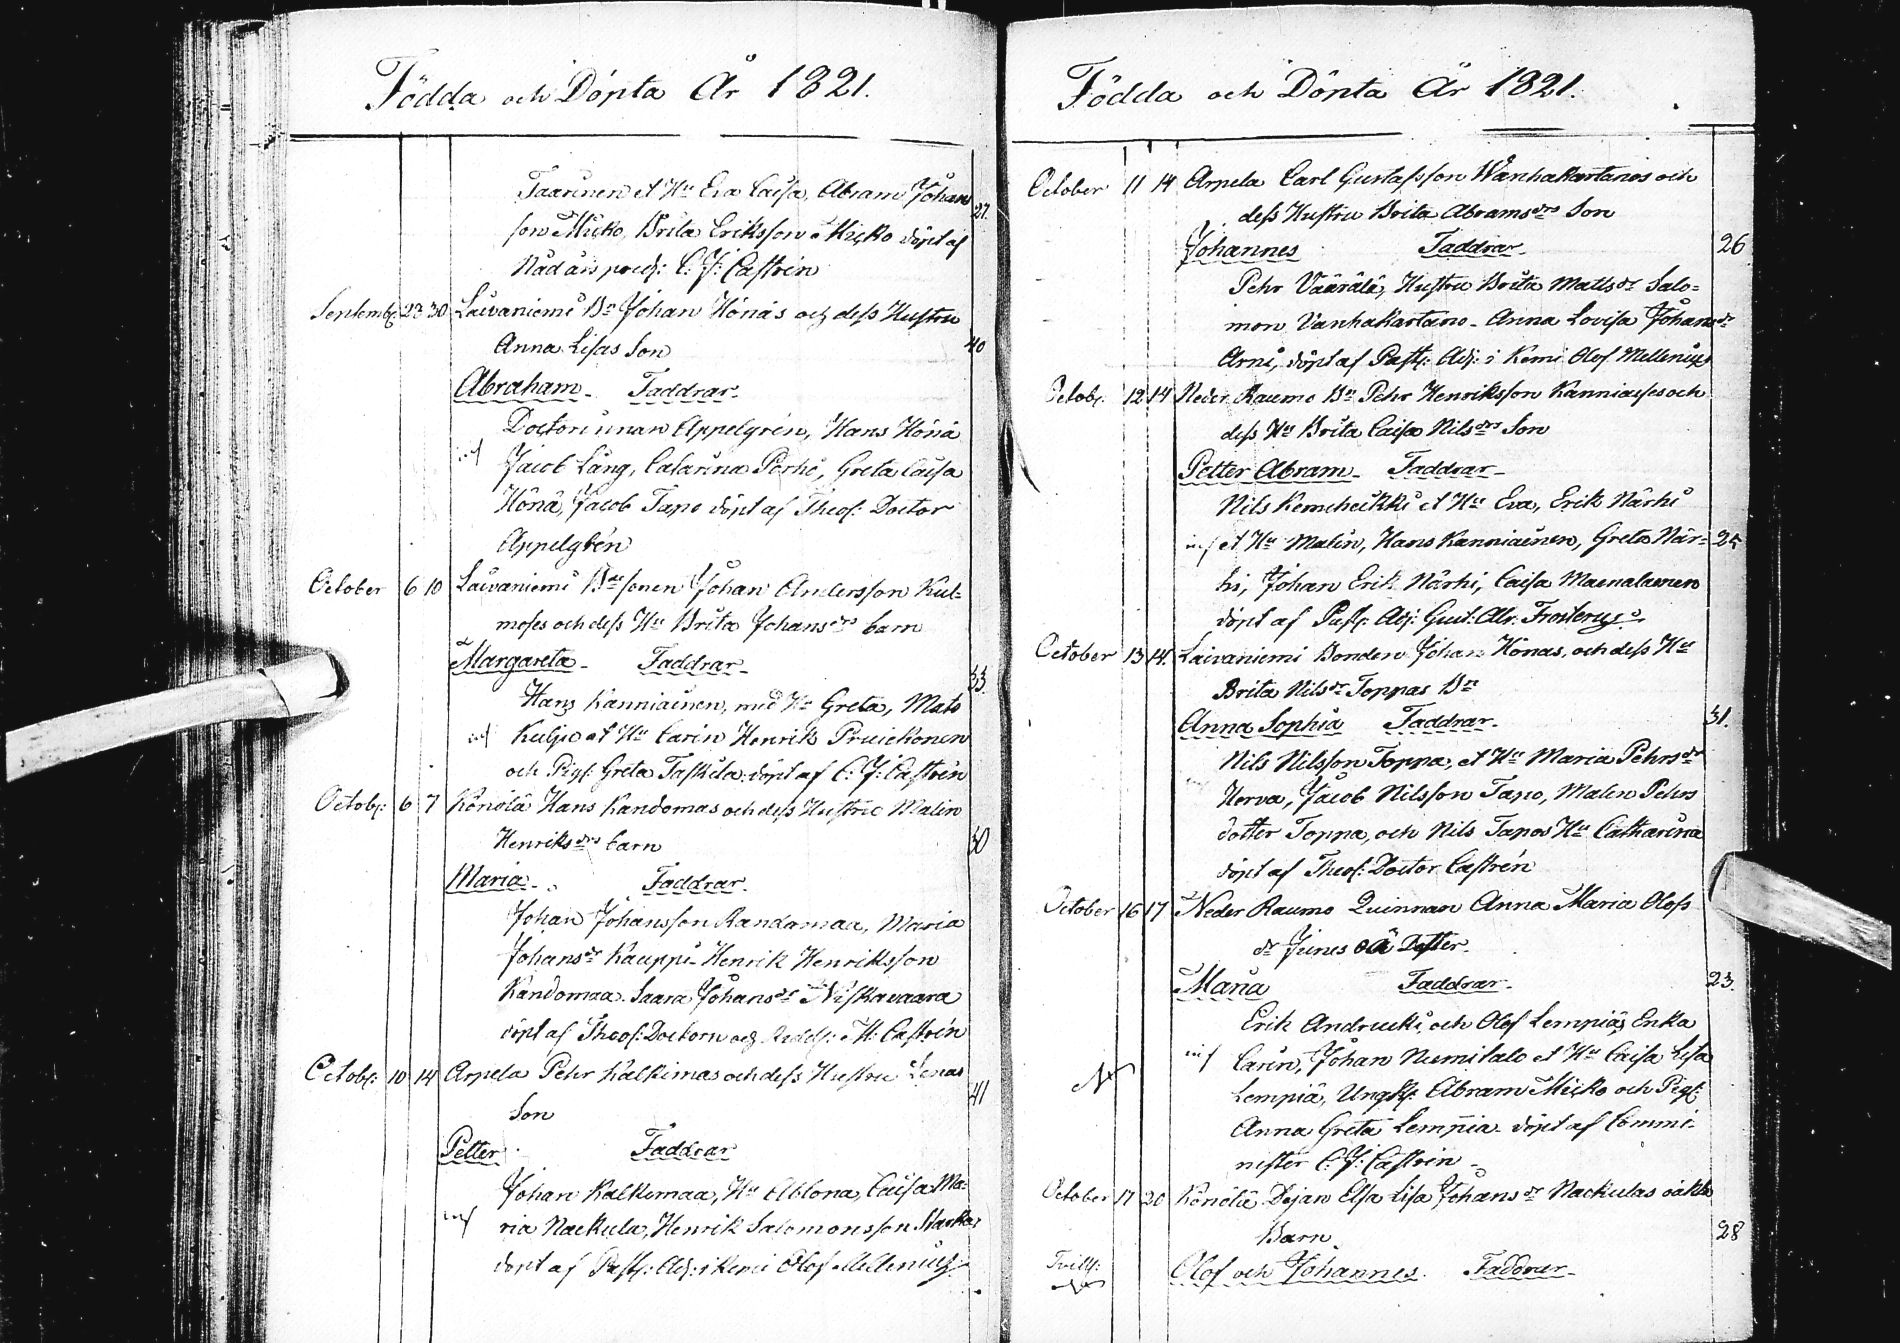 Födda och Döpta År 1821.
Taarinen et Hu Eva Caisa, Abram Johans
27.
son Micko, Brita Eriksson Micko döpt af
Nådårs pred: C: J: Castrén
Septembr 23 30 Laivaniemi Bn Johan Hönäs och dess Hustru
Anna Lisas Son
40
Abraham Faddrar
Doctorinnan Appelgrén, Hans Hönä
inf Jacob Lång, Catarina Perho, Greta Caisa
Hönä, Jacob Tapo döpt af Theol: Doctor
Appelgrén
October 6 10 Laivaniemi Bdesonen Johan Andersson Kul-
moses och dess Hu Brita Johansdrs barn
Margareta Faddrar
33.
Hans Kanniainen, med Hu Greta, Mats
inf Kuljo et Hu Carin Henrik Pruickonen
och Pig: Greta Taskila: döpt af C: J: Castrén
Octobr: 6 7 Könölä Hans Kandomas och dess Hustru Malin
Henriksdrs barn
30
Maria Faddrar
Johan Johansson Randamaa, Maria
Johansdr Kauppi Henrik Henriksson
Kandomaa Saara Johansdr Niskavaara
döpt af Theol: Doctorn och M: Castrén
Octobr: 10 14 Arpela Pehr Kalkimas och dess Hustru Lenas
41
Son
Petter Faddrar
Johan Kalkimaa, Hu Ablona, Caisa Ma-
inf ria Nackula, Henrik Salomonsson
döpt af Past: Adj: i Kemi Olof Mellenius
Födda och Döpta År 1821.
October 11 14 Arpela Carl Gustafsson Wanhakartanos och
dess Hustru Brita Abramsdrs Son
Johannes Faddrar
26
Pehr Väärälä, Hustru Brita Matsdr Salo-
mon Vanhakartano Anna Lovisa Johansdr
Arni, döpt af Past: Adj: i Kemi Olof Mellenius
Octobr: 12 14 Neder Raumo Bn Pehr Henriksson Kanniaises och
dess Hu Brita Caisa Nilsdrs Son
Petter Abram Faddrar
Nils Kemiheikki et Hu Eva, Erik Närhi
inf et Hu Malin, Hans Kanniainen, Greta När- 25
hi, Johan Erik Närhi, Caisa Maenalainen
döpt af Past: Adj: Gust: Abr: Frosterus
October 13 14. Laivaniemi Bonden Johan Hönas, och dess Hu
Brita Nilsdr Toppas Bn
Anna Sophia Faddrar
31.
Nils Nilsson Toppa, et Hu Maria Pehrsdr
Herva, Jacob Nilsson Tapo, Malen Pehrs
dotter Toppa, och Nils Tapos Hu Catharina
döpt af Theol: Doctor Castrén
October 16 17 Neder Raumo Quinnan Anna Maria Olofs
dr Junes oä Dotter
Maria Faddrar
23.
Erik Andrucki, och Olof Lempiäs Enka
inf Carin, Johan Numitalo et Hu Caisa Lisa
Lempiä, Ungk: Abram Micko och Pig:
Anna Greta Lempiä döpt af Commi-
nister C: J: Castrén
October 17 20 Könölä Dejan Elsa Lisa Johansdr Nackulas oäkta
Barn
28
Tvill:
Olof och Johannes. Faddrar